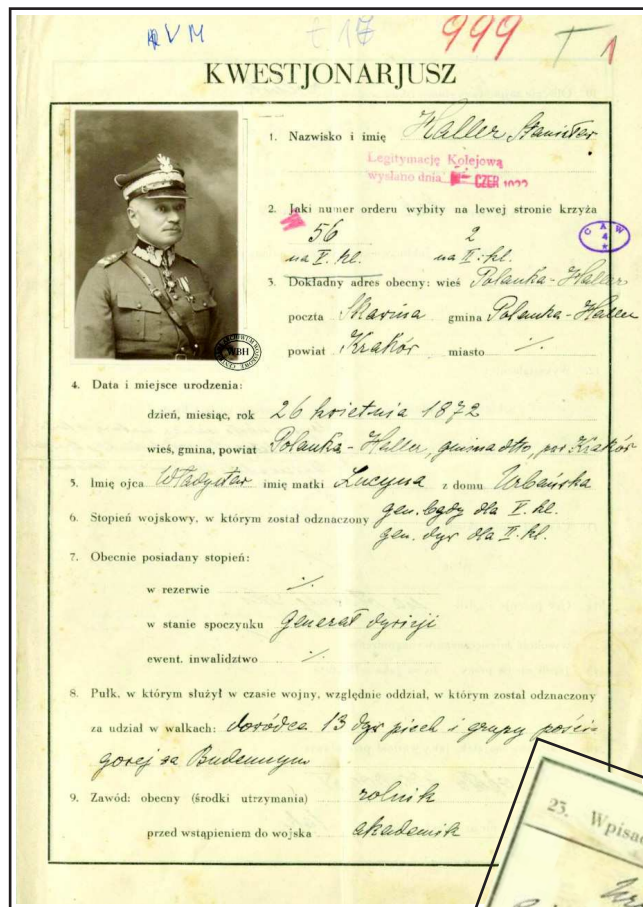 VM
t 17
999
T 1
KWESTJONARJUSZ
1. Nazwisko i imię Haller Stanisław
Legitymację Kolejową
wysłano dnia CZER
2. Jaki numer orderu wybity na lewej stronie krzyża
56 2
na V. kl. na II. kl.
C A W
4
3. Dokładny adres obecny: wieś Polanka-Haller
poczta Skawina gmina Polanka-Haller
powiat Kraków miasto ·/.
WBH
4. Data i miejsce urodzenia:
dzień, miesiąc, rok 26 kwietnia 1872
wieś, gmina, powiat Polanka-Haller, gmina dtto, pow Kraków
5. Imię ojca Władysław imię matki Lucyna z domu Urbańska
6. Stopień wojskowy, w którym został odznaczony gen. bądy dla V. kl.
gen. dyw dla II. kl.
7. Obecnie posiadany stopień:
w rezerwie ·/.
w stanie spoczynku generał dywizji
ewent. inwalidztwo ·/.
8. Pułk, w którym służył w czasie wojny, względnie oddział, w którym został odznaczony
za udział w walkach: dowódca 13 dyw piech i grupy pości-
gowej za Budennym
9. Zawód: obecny (środki utrzymania) rolnik
przed wstąpieniem do wojska akademik
23. Wpisać